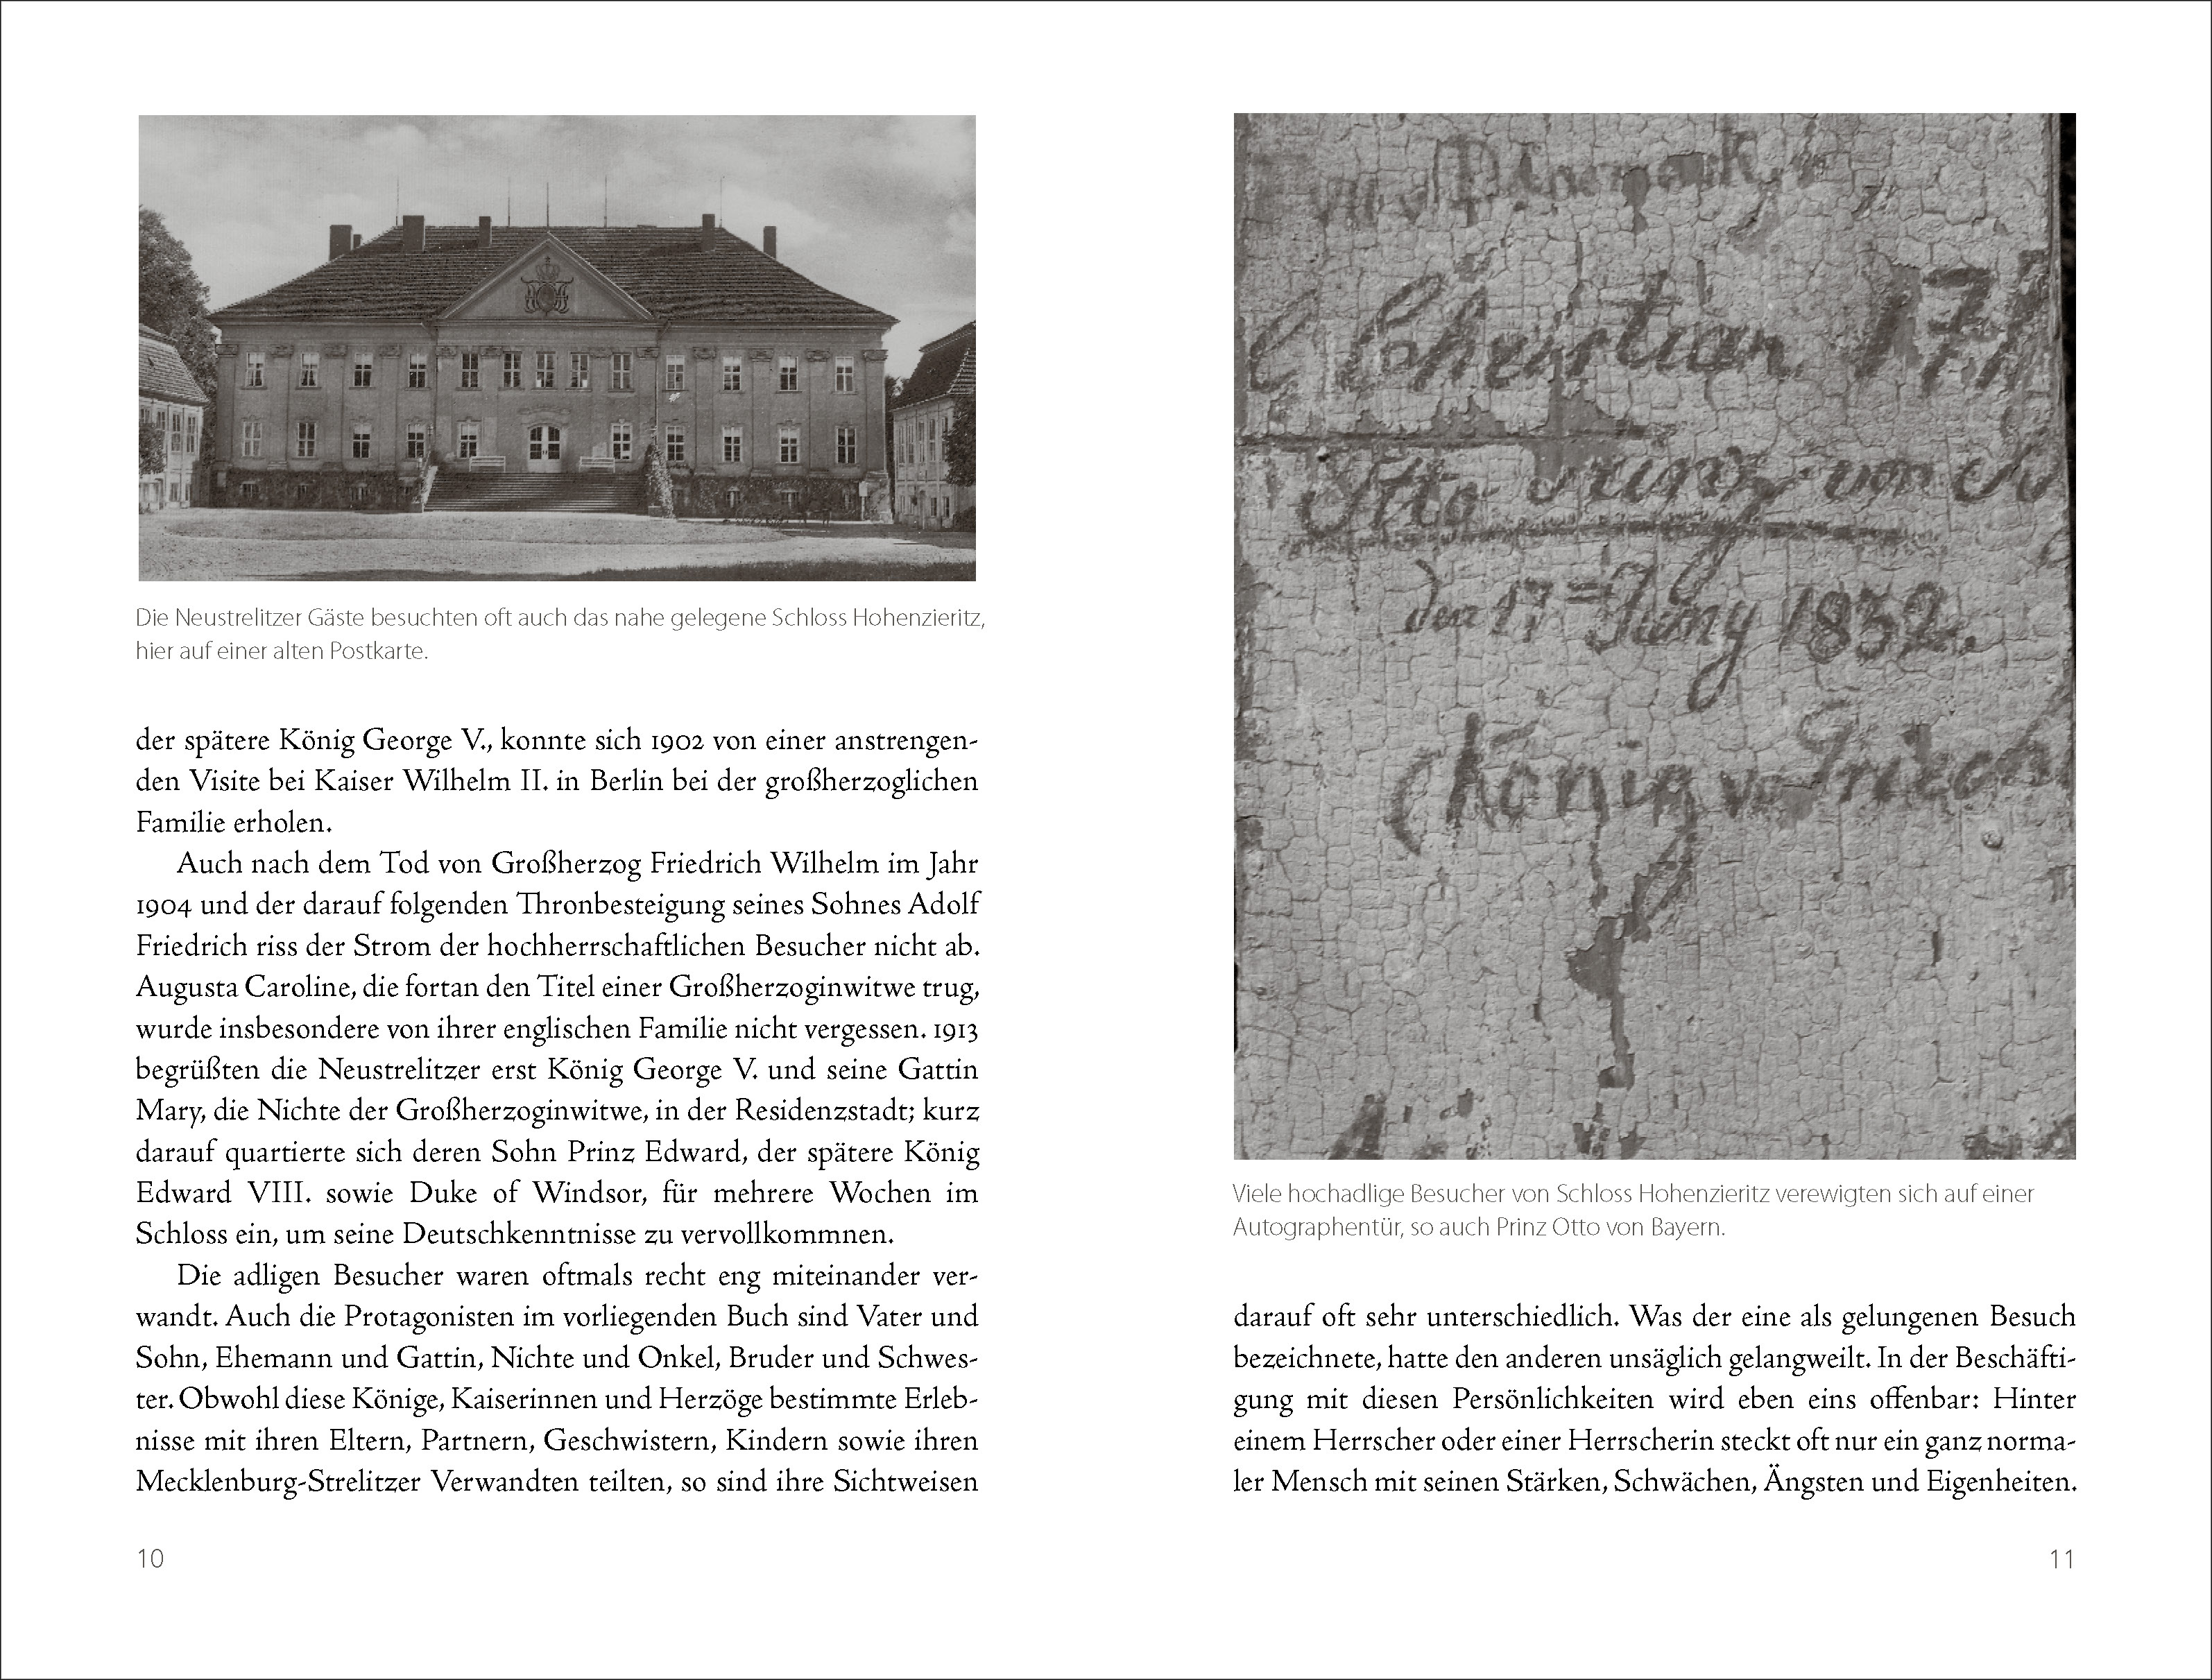 Die Neustrelitzer Gäste besuchten oft auch das nahe gelegene Schloss Hohenzieritz,
hier auf einer alten Postkarte.
der spätere König George V., konnte sich 1902 von einer anstrengen-
den Visite bei Kaiser Wilhelm II. in Berlin bei der großherzoglichen
Familie erholen.
Auch nach dem Tod von Großherzog Friedrich Wilhelm im Jahr
1904 und der darauf folgenden Thronbesteigung seines Sohnes Adolf
Friedrich riss der Strom der hochherrschaftlichen Besucher nicht ab.
Augusta Caroline, die fortan den Titel einer Großherzoginwitwe trug,
wurde insbesondere von ihrer englischen Familie nicht vergessen. 1913
begrüßten die Neustrelitzer erst König George V. und seine Gattin
Mary, die Nichte der Großherzoginwitwe, in der Residenzstadt; kurz
darauf quartierte sich deren Sohn Prinz Edward, der spätere König
Edward VIII. sowie Duke of Windsor, für mehrere Wochen im
Schloss ein, um seine Deutschkenntnisse zu vervollkommnen.
Die adligen Besucher waren oftmals recht eng miteinander ver-
wandt. Auch die Protagonisten im vorliegenden Buch sind Vater und
Sohn, Ehemann und Gattin, Nichte und Onkel, Bruder und Schwes-
ter. Obwohl diese Könige, Kaiserinnen und Herzöge bestimmte Erleb-
nisse mit ihren Eltern, Partnern, Geschwistern, Kindern sowie ihren
Mecklenburg-Strelitzer Verwandten teilten, so sind ihre Sichtweisen
10
Otto Prinz von
den 17 Juny 1832.
König v.
Viele hochadlige Besucher von Schloss Hohenzieritz verewigten sich auf einer
Autographentür, so auch Prinz Otto von Bayern.
darauf oft sehr unterschiedlich. Was der eine als gelungenen Besuch
bezeichnete, hatte den anderen unsäglich gelangweilt. In der Beschäfti-
gung mit diesen Persönlichkeiten wird eben eins offenbar: Hinter
einem Herrscher oder einer Herrscherin steckt oft nur ein ganz norma-
ler Mensch mit seinen Stärken, Schwächen, Ängsten und Eigenheiten.
11